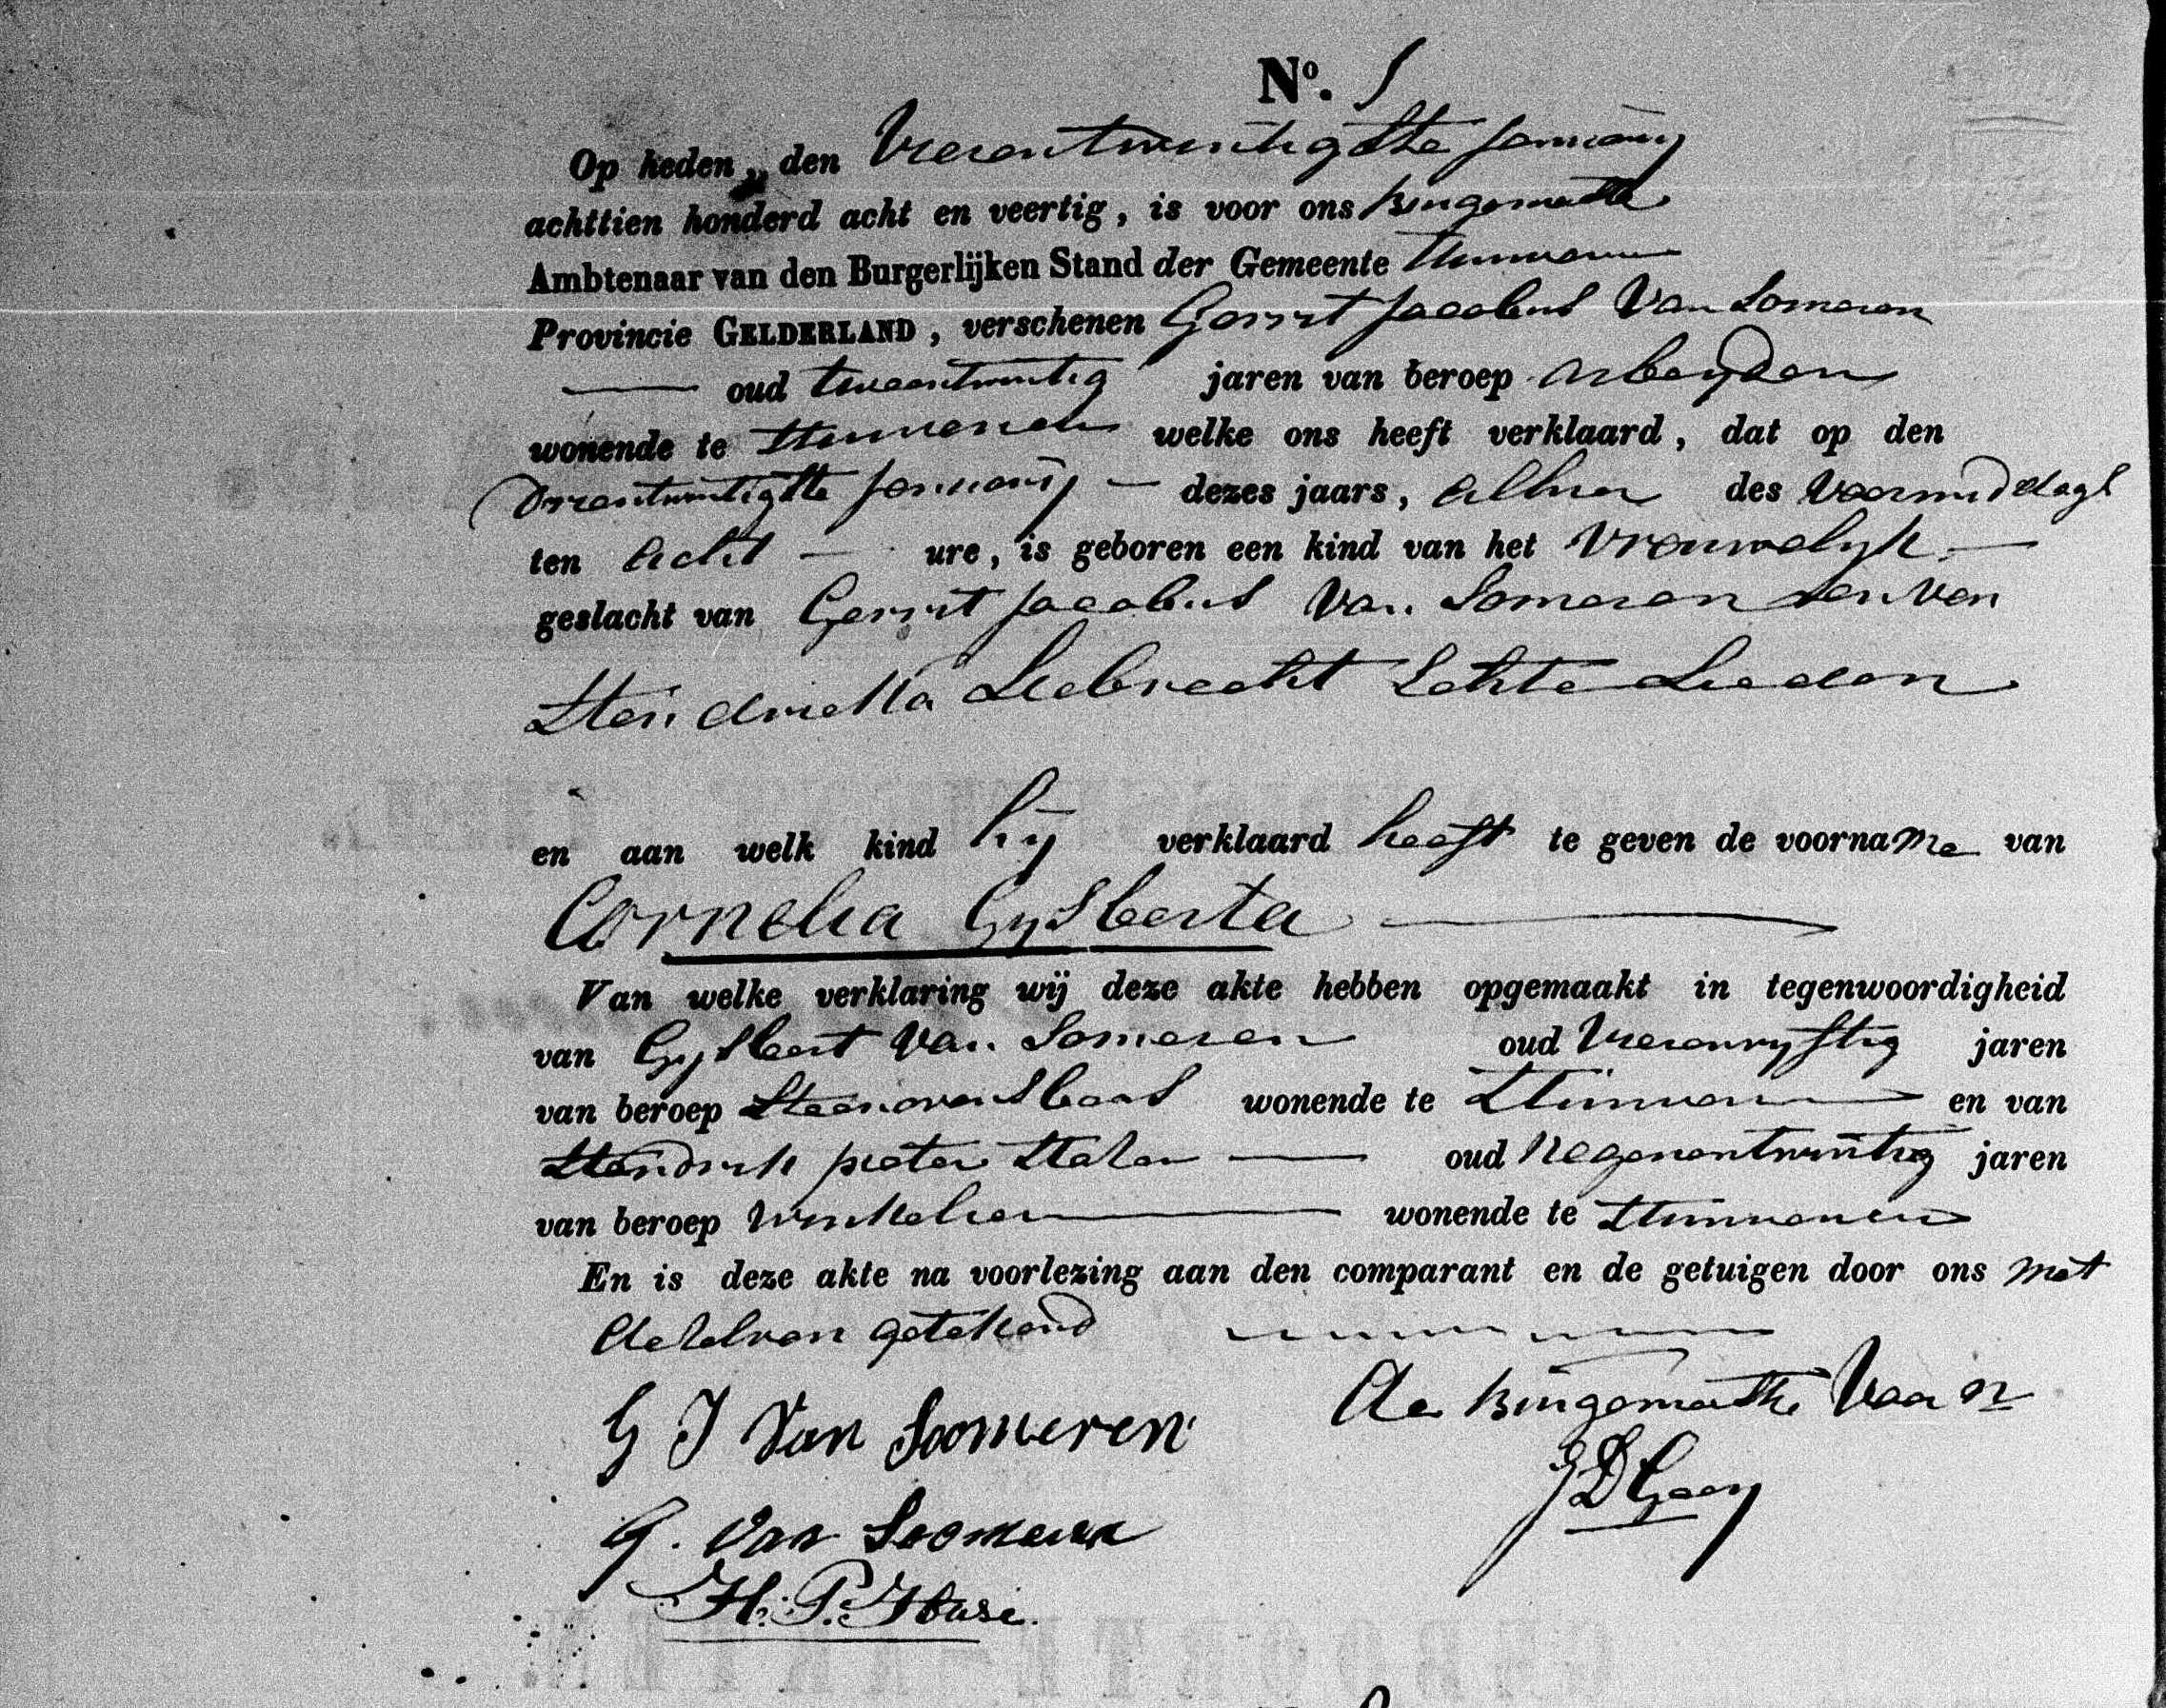 N°. 1
Op heden, den Vierentwintigste January
achttien honderd acht en veertig, is voor ons
Ambtenaar van den Burgerlijken Stand der Gemeente
Provincie GELDERLAND, verschenen Gerrit Jacobus Van Someren
— oud tweentwintig jaren van beroep arbeyder
wonende te welke ons heeft verklaard, dat op den
Drientwintigste January — dezes jaars, alhier des Voormiddags
ten Acht — ure, is geboren een kind van het Vrouwelyk —
geslacht van Gerrit Jacobus Van Someren en Van
Hendrieka Liebrecht Echte Lieden
en aan welk kind hij verklaard heeft te geven de voorname van
Cornelia Gysberta —
Van welke verklaring wij deze akte hebben opgemaakt in tegenwoordigheid
van Gysbert Van Someren oud Vierenvyftig jaren
van beroep Steenovensbaas wonende te en van
Hendrik pieter — oud Negenentwintig jaren
van beroep Winkelier — wonende te
En is deze akte na voorlezing aan den comparant en de getuigen door ons met
dezelven getekend
G J Van Soomeren De Van
G. Van Soomeren
H. P.